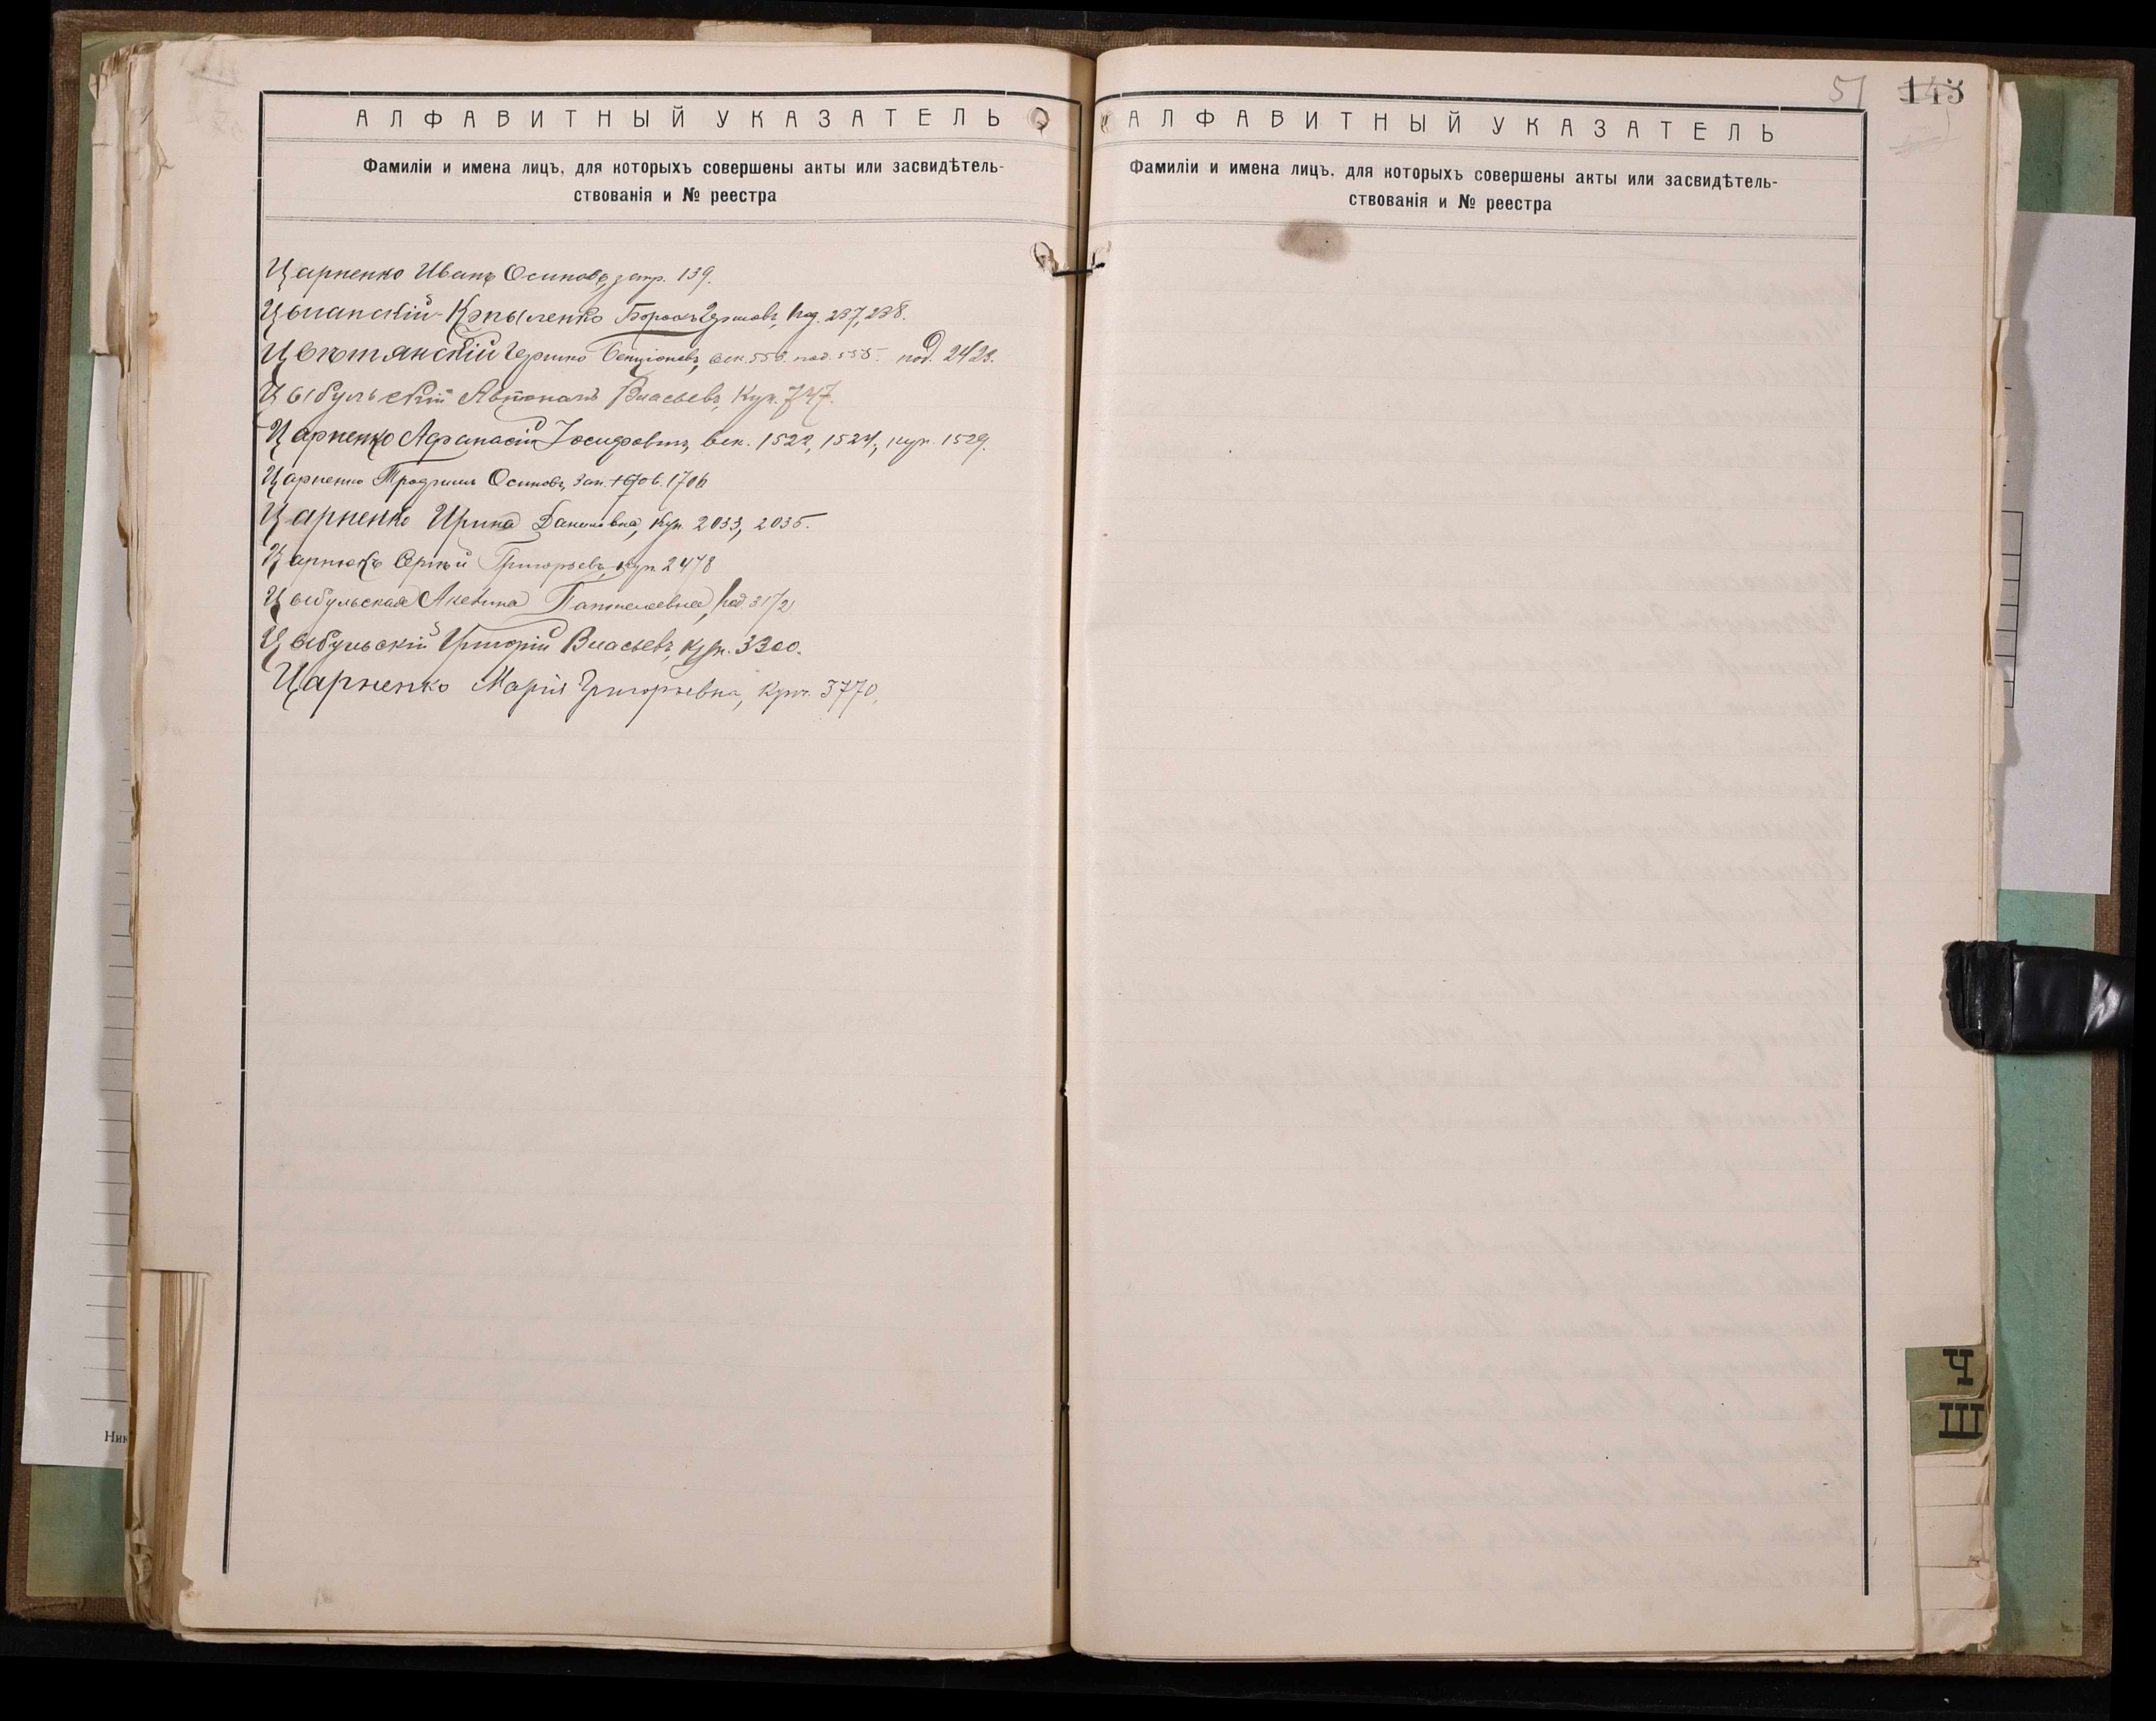 АЛФАВИТНЫЙ УКАЗАТЕЛЬ
Фамиліи и имена лицъ, для которыхъ совершены акты или засвидѣтель-
ствованія и № реестра
Царненко Иванъ Осиповъ, 139.
Цыганскій- 237, 238.
Цвѣтянскій Гершко под. 2423.
Цыбульскій Власьевъ, Куп. 747.
Царненко Афанасій Іосифовичъ, век. 1522, 1524, куп. 1529.
Царненко Трофимъ Осиповъ, 1706
Царненко Ирина Даниловна, куп. 2033, 2035.
Сергѣй Григорьевъ куп. 2478
Цыбульская Пантелеевна, 3172.
Цыбульскій Григорій Власьевъ, куп. 3300.
Царненко Марія Григорьевна, Купч. 3770.
51 143
АЛФАВИТНЫЙ УКАЗАТЕЛЬ
Фамиліи и имена лицъ, для которыхъ совершены акты или засвидѣтель-
ствованія и № реестра
Ч
Ш
Ни